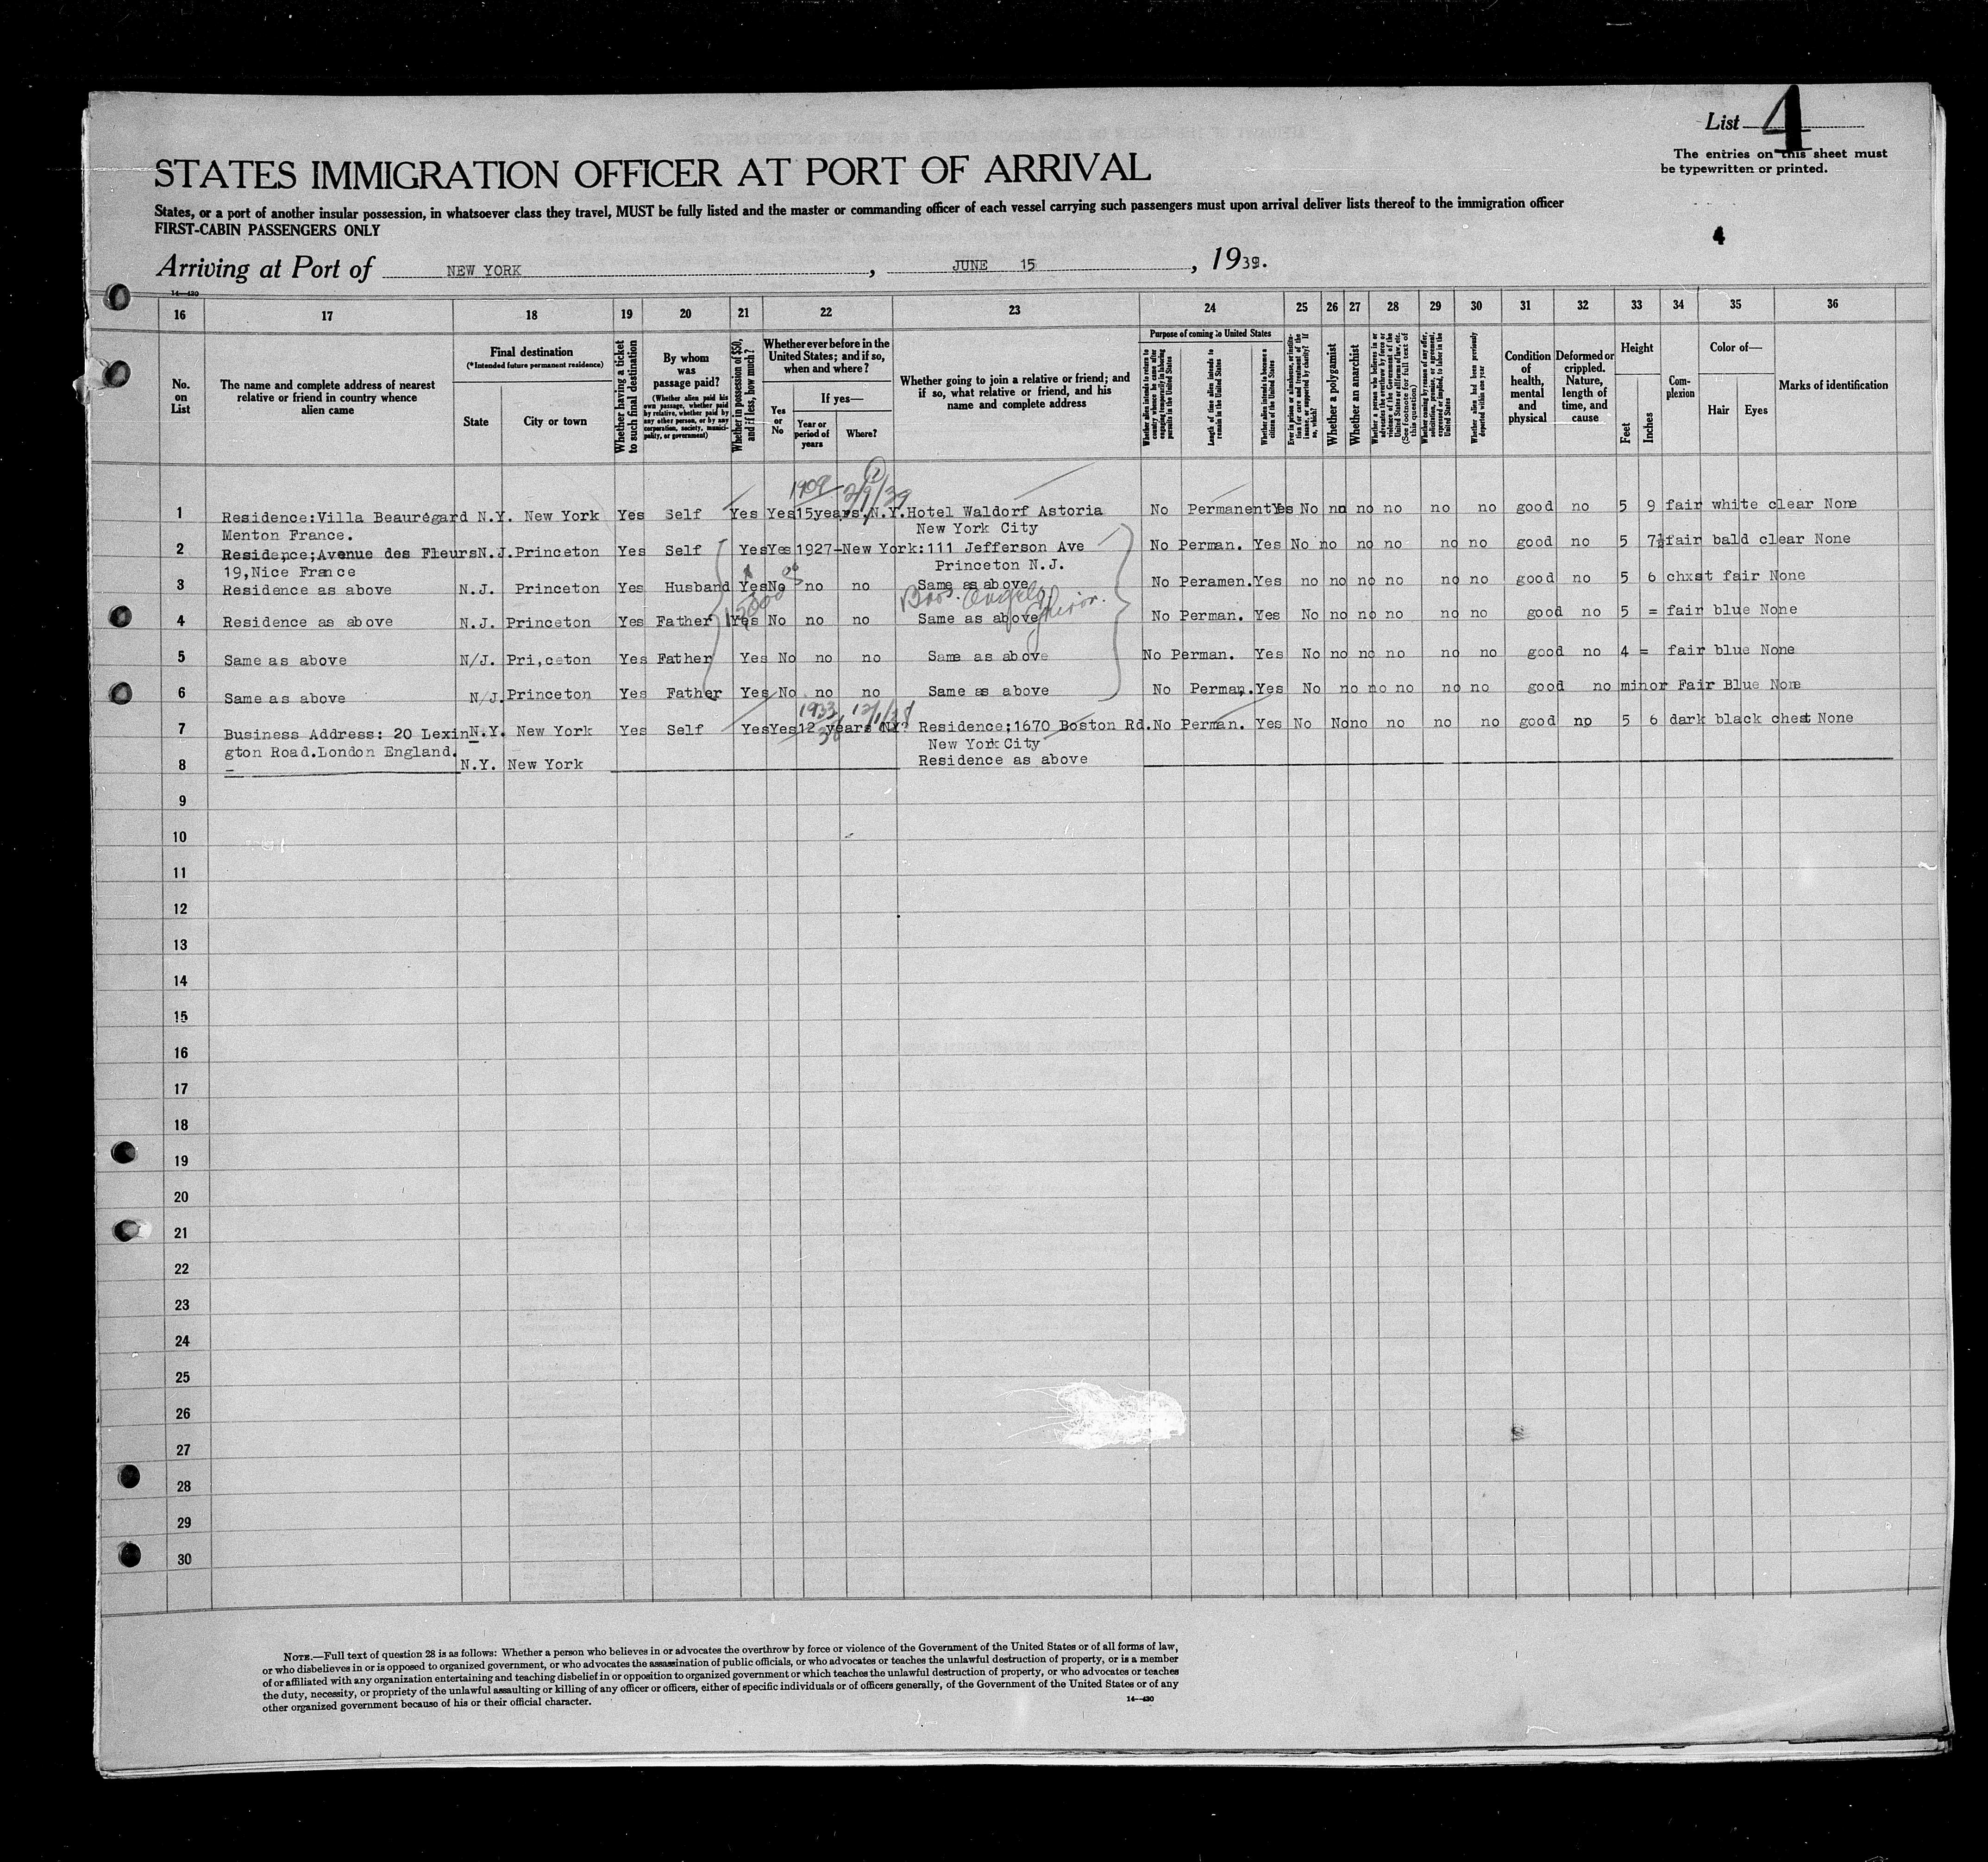 List 4
The entries on this sheet must
be typewritten or printed.
STATES IMMIGRATION OFFICER AT PORT OF ARRIVAL
States, or a port of another insular possession, in whatsoever class they travel, MUST be fully listed and the master or commanding officer of each vessel carrying such passengers must upon arrival deliver lists thereof to the immigration officer
FIRST-CABIN PASSENGERS ONLY
4
Arriving at Port of NEW YORK, JUNE 15, 1939.
14—430
16 17 18 19 20 21 22 23 24 25 26 27 28 29 30 31 32 33 34 35 36
No. on List
The name and complete address of nearest relative or friend in country whence alien came
Final destination
(*Intended future permanent residence)
State
City or town
Whether having a ticket to such final destination
By whom was passage paid?
(Whether alien paid his own passage, whether paid by relative, whether paid by any other person, or by any corporation, society, municipality, or government)
Whether in possession of $50, and if less, how much?
Whether ever before in the United States; and if so, when and where?
Yes or No
If yes—
Year or period of years
Where?
Whether going to join a relative or friend; and if so, what relative or friend, and his name and complete address
Purpose of coming to United States
Length of time alien intends to remain in the United States
Whether alien intends to become a citizen of the United States
Whether a polygamist
Whether an anarchist
Whether alien had been previously deported within one year
Condition of health, mental and physical
Deformed or crippled. Nature, length of time, and cause
Height
Feet
Inches
Complexion
Color of—
Hair
Eyes
Marks of identification
1909 2/9/39
1 Residence:Villa Beauregard N.Y. New York Yes Self Yes Yes 15years.N.Y. Hotel Waldorf Astoria No Permanent Yes No no no no no no good no 5 9 fair white clear None
Menton France. New York City
2 Residence;Avenue des Fleurs N.J. Princeton Yes Self Yes Yes 1927-New York:111 Jefferson Ave No Perman. Yes No no no no no no good no 5 7½ fair bald clear None
19,Nice France Princeton N.J.
3 Residence as above N.J. Princeton Yes Husband Yes No no no Same as above No Peramen. Yes no no no no no no good no 5 6 chxst fair None
Bros. Angelo
4 Residence as above N.J. Princeton Yes Father Yes No no no Same as above No Perman. Yes No no no no no no good no 5 = fair blue None
5 Same as above N/J. Pri,ceton Yes Father Yes No no no Same as above No Perman. Yes No no no no no no good no 4 = fair blue None
6 Same as above N/J. Princeton Yes Father Yes No no no Same as above No Perman. Yes No no no no no no good no minor Fair Blue None
1933 12/1/38
7 Business Address: 20 Lexin N.Y. New York Yes Self Yes Yes 12 years NY? Residence;1670 Boston Rd. No Perman. Yes No No no no no no good no 5 6 dark black chest None
38
gton Road.London England. New York City
8 N.Y. New York Residence as above
9
10
11
12
13
14
15
16
17
18
19
20
21
22
23
24
25
26
27
28
29
30
NOTE.—Full text of question 28 is as follows: Whether a person who believes in or advocates the overthrow by force or violence of the Government of the United States or of all forms of law,
or who disbelieves in or is opposed to organized government, or who advocates the assassination of public officials, or who advocates or teaches the unlawful destruction of property, or is a member
of or affiliated with any organization entertaining and teaching disbelief in or opposition to organized government or which teaches the unlawful destruction of property, or who advocates or teaches
the duty, necessity, or propriety of the unlawful assaulting or killing of any officer or officers, either of specific individuals or of officers generally, of the Government of the United States or of any
other organized government because of his or their official character.
14—430